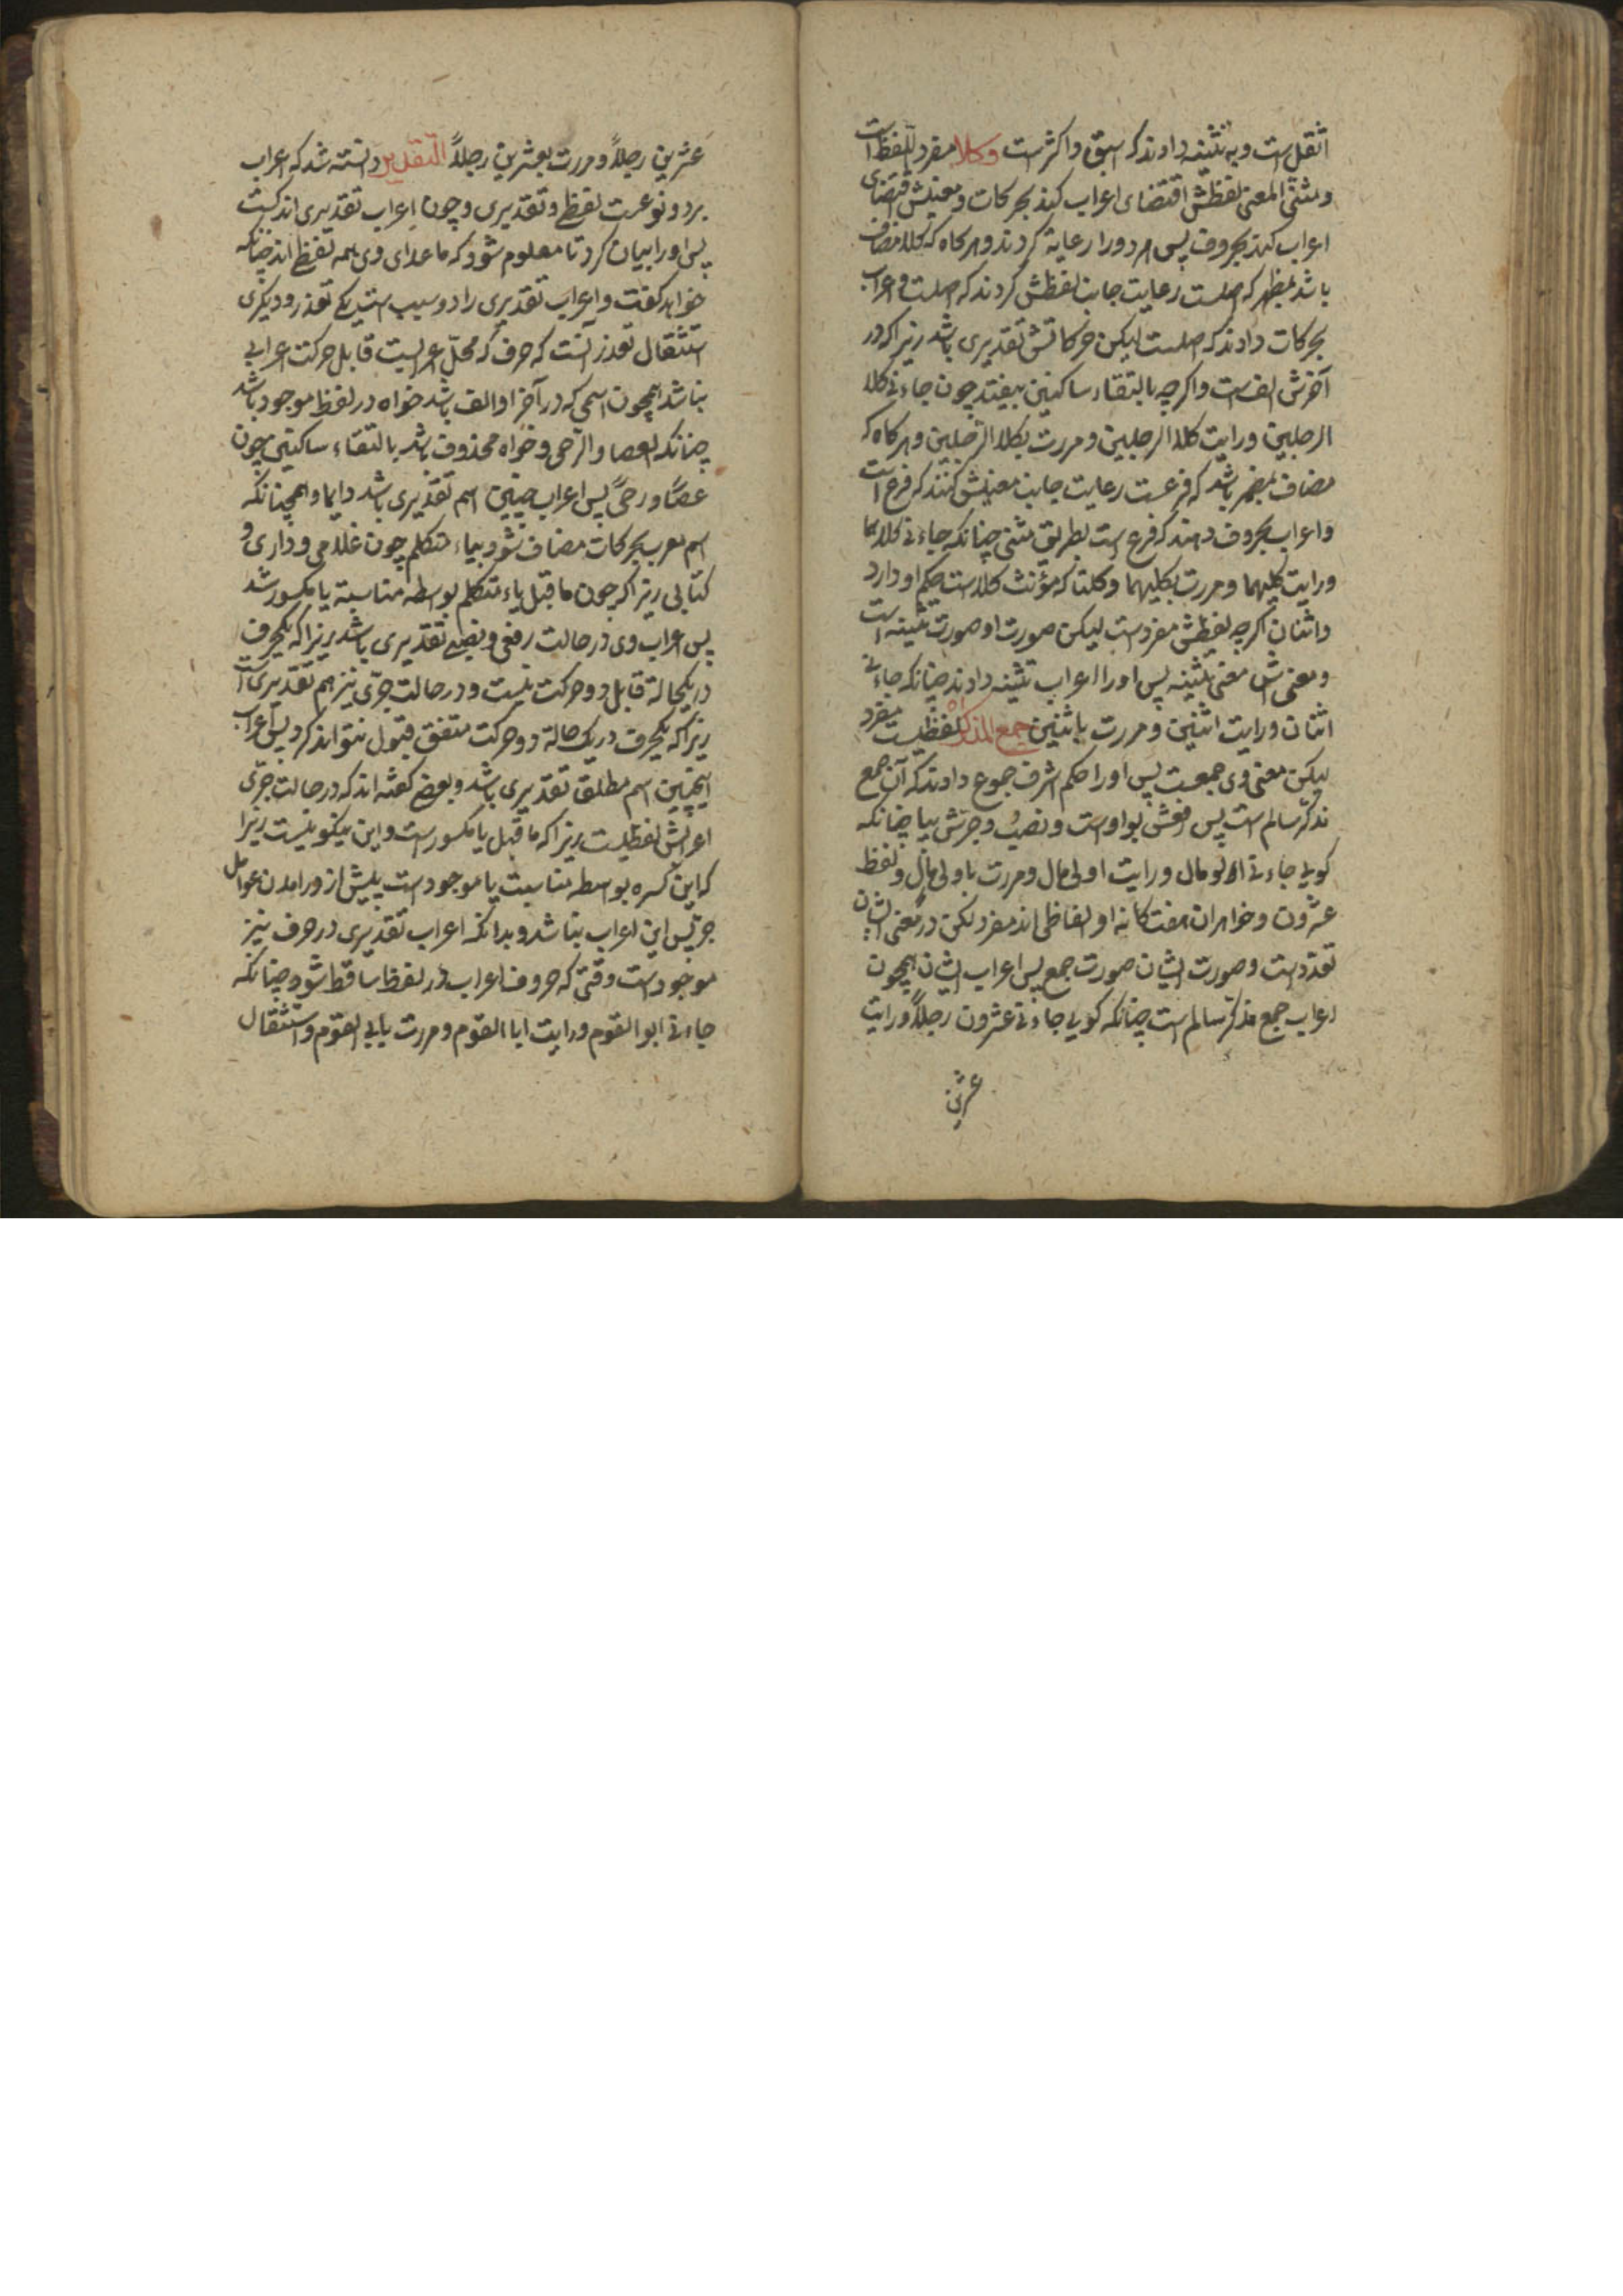 اثقل است و به تثنیه دادند که اسبق و اکثرست وکلا مفرد اللفظ است
و مثنی المعنی لفظش اقتضای اعراب کند بحرکات و معنیش اقتضای
اعراب کند بحروف پس هر دو را رعایة کردند و هرکاه که کلا مضاف
باشد بمظهر که اصلست رعایت جانب لفظش کردند که اصلست و اعراب
بحرکات دادند که اصلست لیکن حرکاتش تقدیری باشد زیراکه در
آخرش الف است و اکرچه بالتقاء ساکنین بیفتد چون جاءنی کلا
الرجلین و رایت کلا الرجلین و مررت بکلا الرجلین و هرکاه که
مضاف بمضمر باشد که فرعست رعایت جانب معنیش کنند که فرع است
و اعراب بحروف دهند که فرع است بطریق مثنی چنانکه جاءنی کلاهما
و رایت کلیهما و مررت بکلیهما و کلتا که مؤنث کلاست حکم او دارد
و اثنان اکرچه لفظش مفردست لیکن صورت او صورت تثنیه است
و معنی اش معنی تثنیه پس او را اعراب تثنیه دادند چنانکه جاءنی
اثنان و رایت اثنین و مررت باثنین جمع المذکر لفظیست مفرد
لیکن معنی وی جمعست پس او را حکم اشرف جموع دادند که آن جمع
مذکر سالم است پس رفعش بواوست و نصب و جرش بیا چنانکه
کویی جاءنی الو مال و رایت اولی مال و مررت باولی مال و لفظ
عشرون و خواهران هفتکانه او الفاظی اند مفرد لکن در معنی ایشان
تعددست و صورت ایشان صورت جمع پس اعراب ایشان همچون
اعراب جمع مذکر سالم است چنانکه کویی جاءنی عشرون رجلاً و رایت
عشرین
عشرین رجلاً و مررت بعشرین رجلاً التقدیر دانسته شد که اعراب
بر دو نوعست لفظی و تقدیری و چون اعراب تقدیری اندکست
پس او را بیان کرد تا معلوم شود که ماعدای وی همه لفظی اند چنانکه
خواهد کفت و اعراب تقدیری را دو سبب است یکی تعذر و دیکری
استثقال تعذر آنست که حرف که محل اعرابست قابل حرکت اعرابی
نباشد همچون اسمی که در آخر او الف باشد خواه در لفظ موجود باشد
چنانکه العصا و الرحی و خواه محذوف باشد بالتقاء ساکنین چون
عصًا و رحیً پس اعراب چنین اسم تقدیری باشد دایما و همچنانکه
اسم معرب بحرکات مضاف شود بیاء متکلم چون غلامی و داری و
کتابی زیراکه چون ماقبل یاء متکلم بواسطه مناسبة یا مکسور شد
پس اعراب وی در حالت رفعی و نصبی تقدیری باشد زیراکه یکحرف
در یکحالة قابل دو حرکت نیست و در حالت جرّی نیز هم تقدیری است
زیراکه یکحرف در یک حالة دو حرکت متفق قبول نتواند کرد پس اعراب
اینچنین اسم مطلقا تقدیری باشد و بعضی کفته اند که در حالت جرّی
اعرابش لفظیست زیراکه ماقبل یا مکسورست و این نیکو نیست زیرا
که این کسره بواسطه مناسبت یا موجودست پیش از در امدن عوامل
جر پس این اعراب نباشد و بدانکه اعراب تقدیری در حرف نیز
موجودست وقتی که حروف اعراب در لفظ ساقط شود چنانکه
جاءنی ابوا القوم و رایت ابا القوم و مررت بابی القوم و استثقال